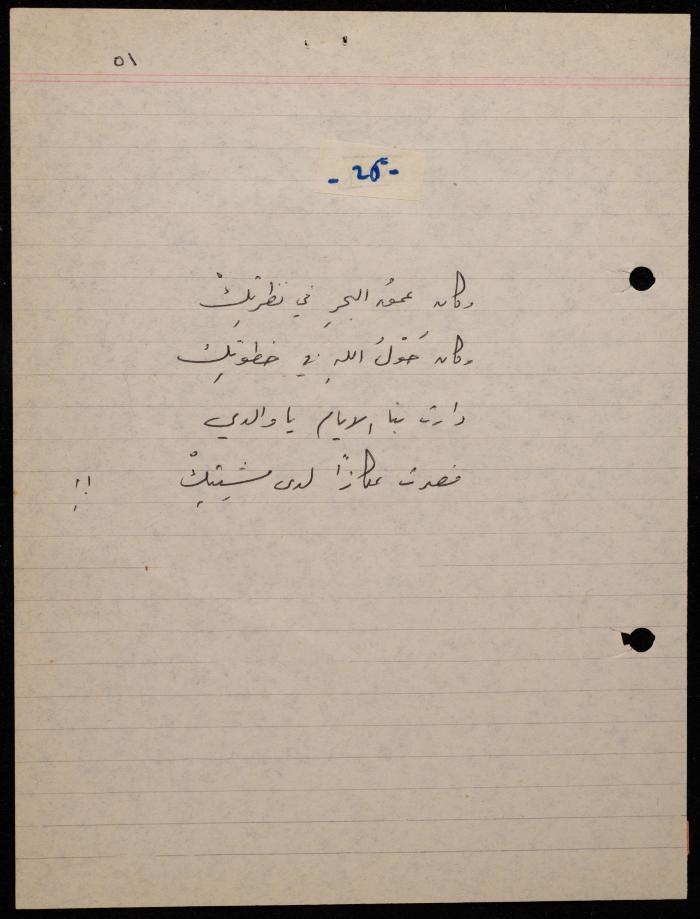 ٥١
- ٢٥ -
وكان عمقُ البحرِ في نظرتِكْ
وكان حَوْلُ اللهِ في خطوتِكْ
دارت بنا الايام يا والدي
فصرت عكازاً لدى مشيتِكْ !!